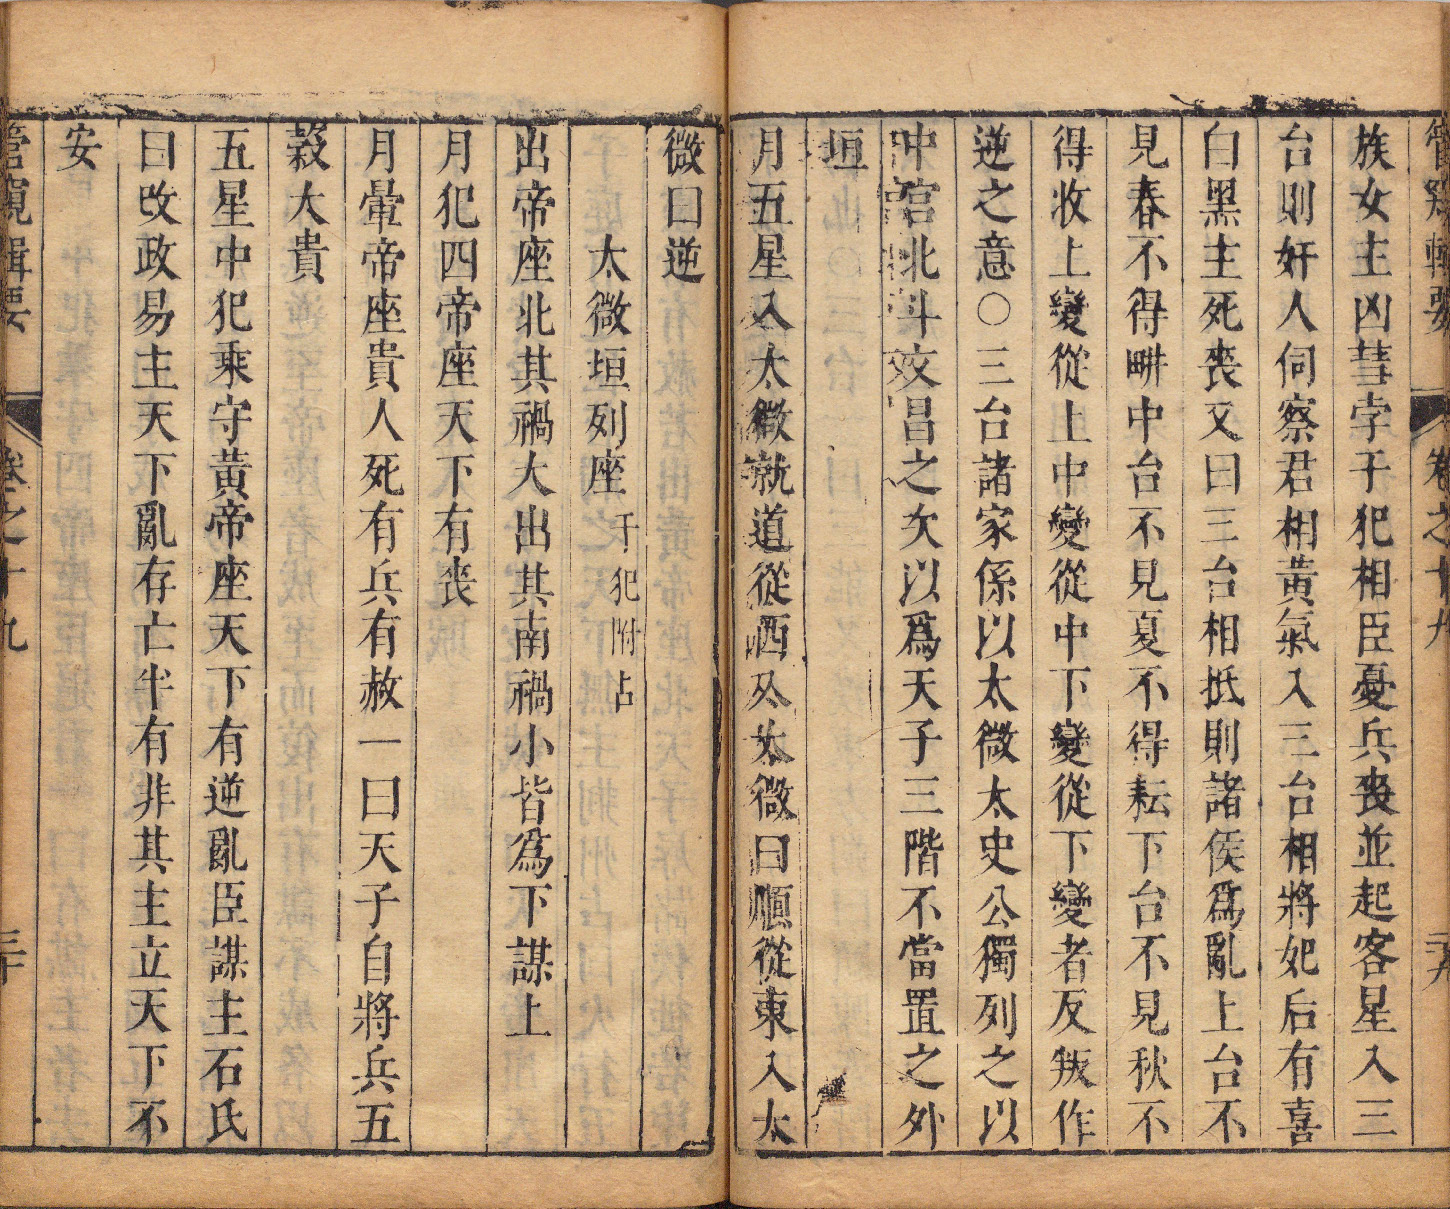 管窺輯要
卷之十九
二十九
族女主凶彗孛干犯相臣憂兵喪並起客星入三
台則奸人伺察君相黃氣入三台相將妃后有喜
白黑主死喪又曰三台相抵則諸侯爲亂上台不
見春不得畊中台不見夏不得耘下台不見秋不
得收上變從上中變從中下變從下變者反叛作
逆之意○三台諸家係以太微太史公獨列之以
中宮北斗文昌之次以爲天子三階不當置之外
垣
月五星入太微就道從西入太微曰順從東入太
微曰逆
太微垣列座干犯附占
出帝座北其禍大出其南禍小皆爲下謀上
月犯四帝座天下有喪
月暈帝座貴人死有兵有赦一曰天子自將兵五
穀大貴
五星中犯乘守黃帝座天下有逆亂臣謀主石氏
曰改政易主天下亂存亡半有非其主立天下不
安
管窺輯要
卷之十九
三十